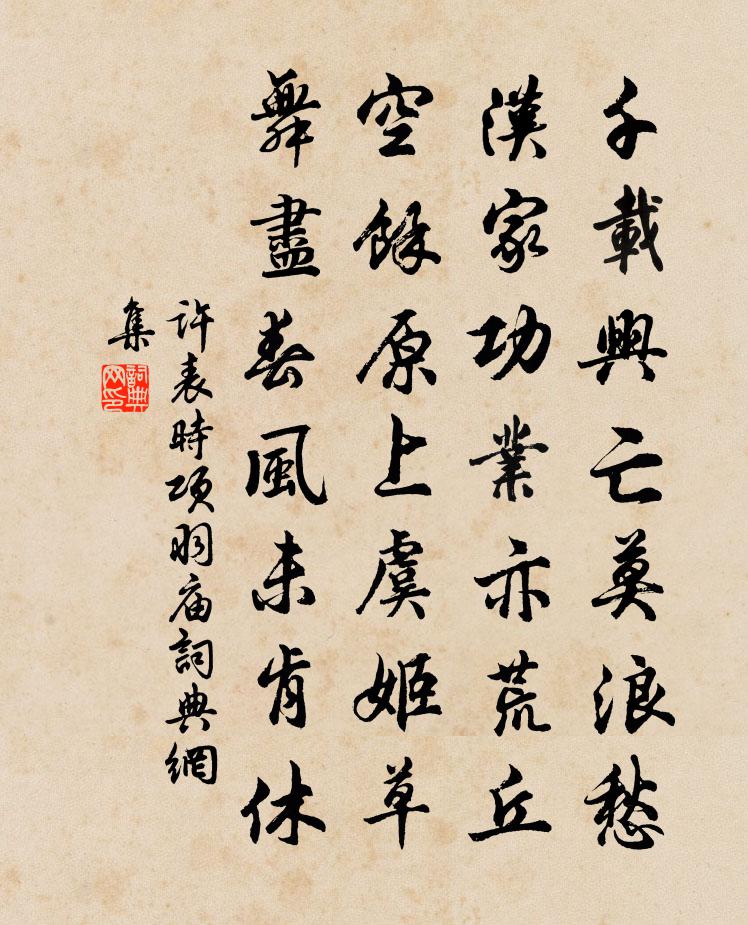 千載興亡莫浪愁
漢家功業亦荒丘
空餘原上虞姬草
舞盡春風未肯休
許表時項羽庙詞典網
集
詞典网印